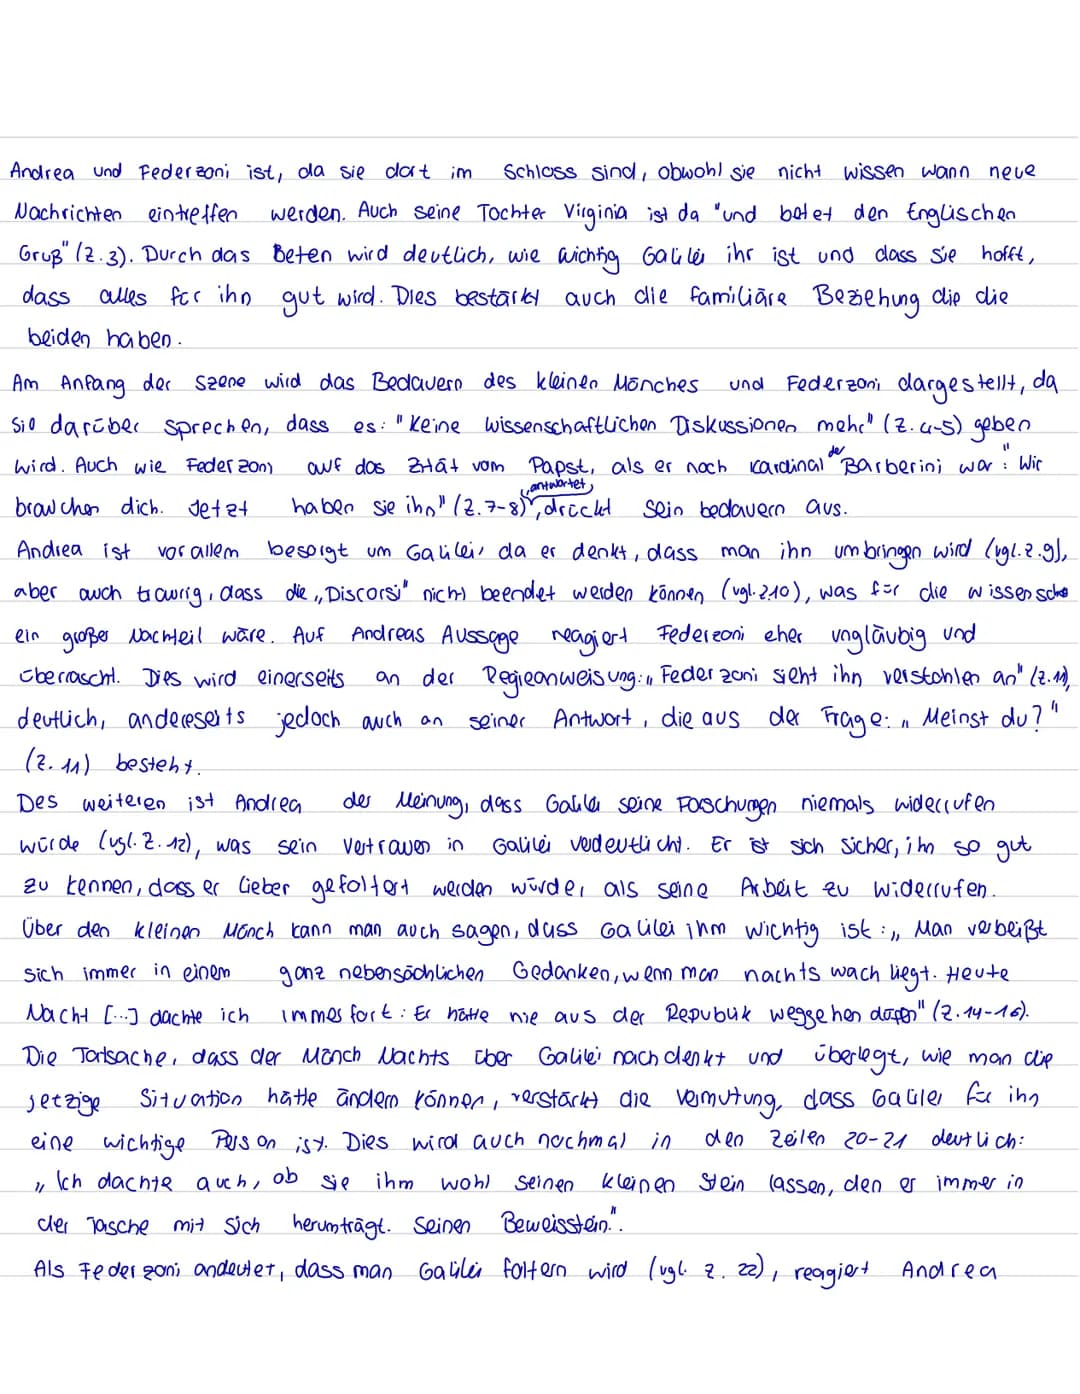 Andrea und Federzoni ist, da sie dort im Schloss sind, obwohl sie nicht wissen wann neue
Nachrichten eintreffen werden. Auch seine Tochter Virginia ist da "und betet den Englischen
Gruß" (Z.3). Durch das Beten wird deutlich, wie wichtig Galilei ihr ist und dass sie hofft,
dass alles für ihn gut wird. Dies bestärkt auch die familiäre Beziehung die die
beiden haben.
Am Anfang der Szene wird das Bedauern des kleinen Mönches und Federzoni dargestellt, da
sie darüber sprechen, dass es: "Keine wissenschaftlichen Diskussionen mehr" (Z.4-5) geben
wird. Auch wie Federzoni auf das Zitat vom Papst, als er noch Kardinal der Barberini war: "Wir
brauchen dich. Jetzt haben sie ihn" (Z.7-8) antwortet, drückt sein bedauern aus.
Andrea ist vor allem besorgt um Galilei, da er denkt, dass man ihn umbringen wird (vgl. Z.9),
aber auch traurig, dass die „Discorsi" nicht beendet werden können (vgl. Z.10), was für die wissensch
ein großer Nachteil wäre. Auf Andreas Aussage reagiert Federzoni eher ungläubig und
überrascht. Dies wird einerseits an der Regieanweisung: „Federzoni sieht ihn verstohlen an" (Z.11),
deutlich, anderseits jedoch auch an seiner Antwort, die aus der Frage: „Meinst du?"
(Z.11) besteht.
Des weiteren ist Andrea der Meinung, dass Galilei seine Forschungen niemals widerrufen
würde (vgl. Z.12), was sein Vertrauen in Galilei verdeutlicht. Er ist sich sicher, ihn so gut
zu kennen, dass er lieber gefoltert werden würde, als seine Arbeit zu widerrufen.
Über den kleinen Mönch kann man auch sagen, dass Galilei ihm wichtig ist: „Man verbeißt
sich immer in einem ganz nebensächlichen Gedanken, wenn man nachts wach liegt. Heute
Nacht [...] dachte ich immerfort: Er hätte nie aus der Republik weggehen dürfen" (Z.14-16).
Die Tatsache, dass der Mönch Nachts über Galilei nachdenkt und überlegt, wie man die
jetzige Situation hätte ändern können, verstärkt die Vermutung, dass Galilei für ihn
eine wichtige Person ist. Dies wird auch nochmal in den Zeilen 20-21 deutlich:
„Ich dachte auch, ob sie ihm wohl seinen kleinen Stein lassen, den er immer in
der Tasche mit sich herumträgt. Seinen Beweisstein.".
Als Federzoni andeutet, dass man Galilei foltern wird (vgl. Z.22), reagiert Andrea